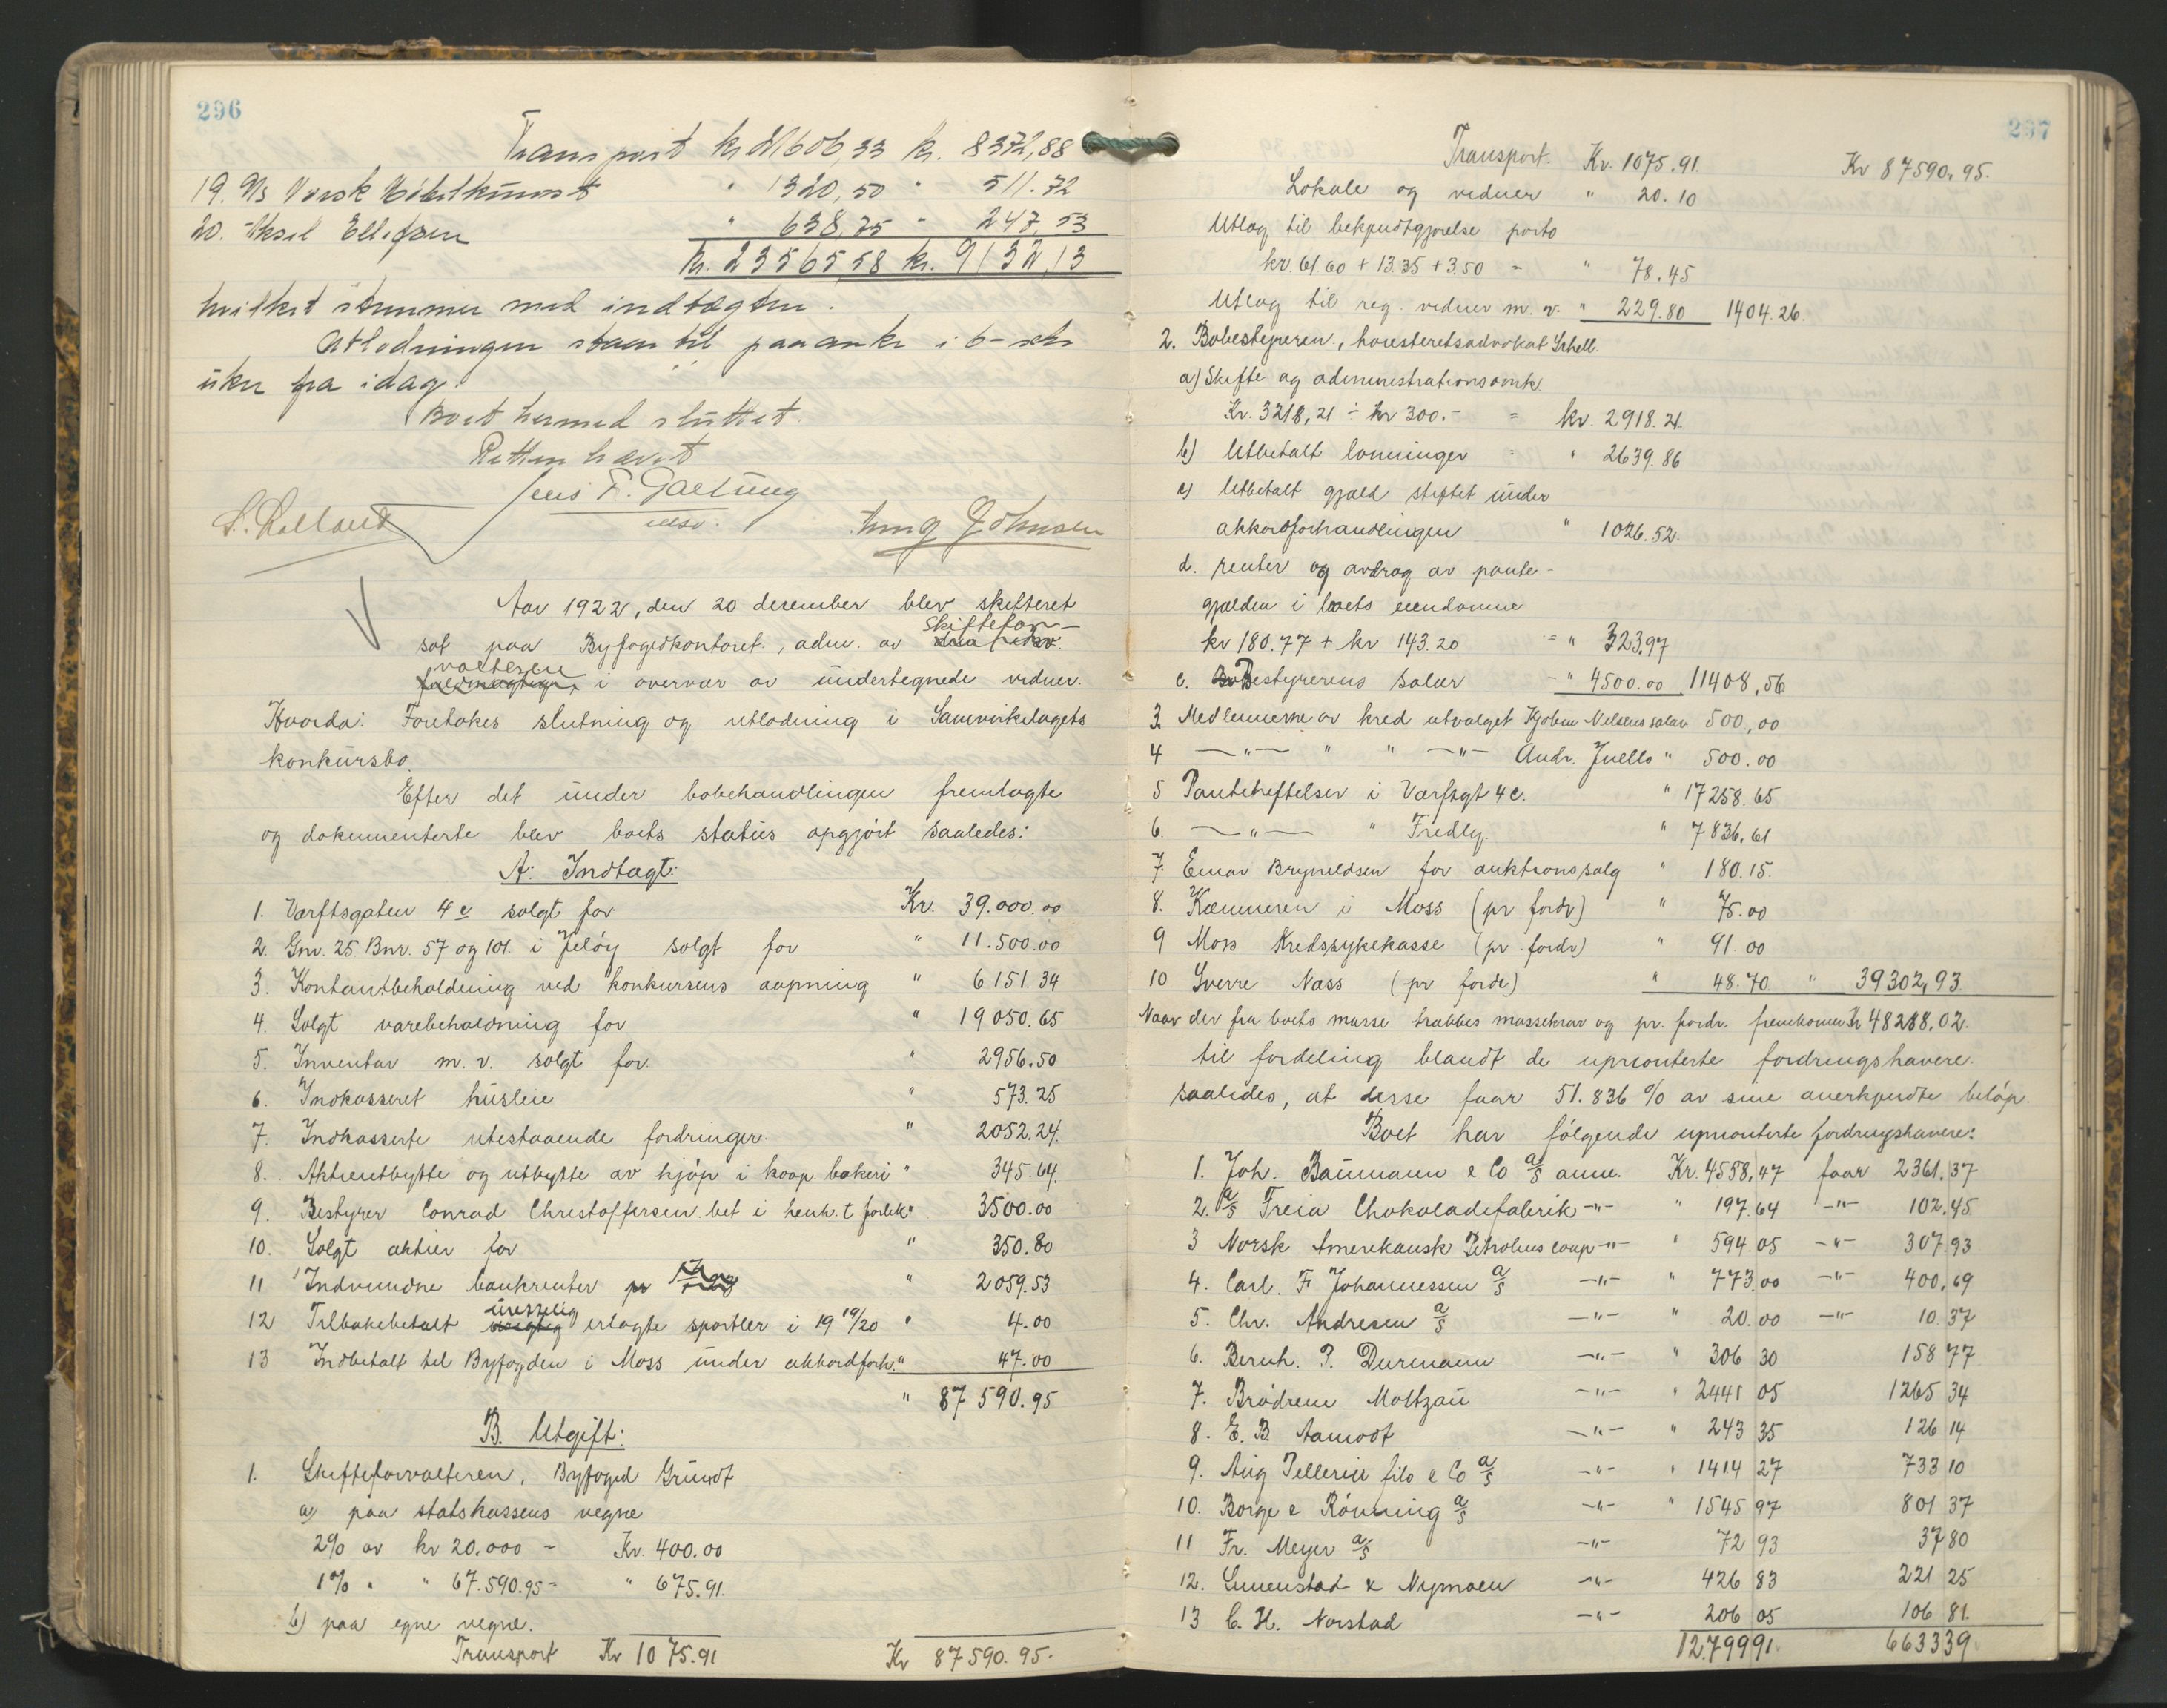 296
Transport kr 21606,33 kr. 8372,88
19. A/s Norsk Möbelkunst " 1320,50 " 511.72
20. Aksel Ellefsen " 638,75 " 247,53
Kr. 23565,58 kr. 9132,13
hvilket stemmer med indtægten.
Utlodningen staar til paaanke i 6-seks
uker fra idag.
Boet hermed sluttet.
Retten hævet
Jens F. Galtung
S. Rolland
Aar 1922, den 20 desember blev skifteret
sat paa Byfogedkontoret, adm. av skiftefor-
valteren i overvær av undertegnede vidner.
Hvorda: Foretokes slutning og utlodning i Samvirkelagets
konkursbo.
Efter det under bobehandlingen fremlagte
og dokumenterte blev boets status opgjört saaledes:
A: Indtægt:
1. Værftsgaten 4c solgt for Kr. 39.000.00
2. Gnr. 25 Bnr. 57 og 101. i Jelöy solgt for " 11.500.00
3. Kontantbeholdning ved konkursens aapning " 6151.34
4. Solgt varebeholdning for " 19050.65
5. Inventar m. v. solgt for " 2956.50
6. Indkasseret husleie " 573.25
7. Indkasserte utestaaende fordringer. " 2052.24.
8. Aktieutbytte og utbytte av kjöp i koop. bakeri " 345.64.
9. Bestyrer Conrad Christoffersen bet i henh. t forlik " 3500.00
10. Solgt aktier for " 350.80
11 Indvundne bankrenter " 2059.53
12 Tilbakebetalt urettelig erlagte sportler i 19 19/20 " 4.00
13 Indbetalt til Byfogden i Moss under akkordforh. " 47.00
" 87590.95
B. Utgift:
1. Skifteforvalteren, Byfoged Gründt
a) paa statskassens vegne
2% av kr 20.000 - Kr. 400.00
1% " " 67.590.95 - " 675.91.
b) paa egne vegne.
Transport Kr 1075.91 Kr 87590.95.
297
Transport. Kr. 1075.91. Kr 87590.95.
Lokale og vidner " 20.10
Utlæg til bekjendtgjørelse porto
kr. 61.60 + 13.35 + 3.50 = " 78.45
Utlæg til reg. vidner m. v. " 229.80 1404.26.
2. Bobestyreren, høiesteretsadvokat Schell.
a) Skifte og administrationsomk.
Kr. 3218,21 ÷ kr 300.- = kr. 2918.21.
b) Utbetalt lønninger = " 2639.86
c) Utbetalt gjæld stiftet under
akkordforhandlingen " 1026.52.
d. renter og avdrag av pante-
gjælden i boets eiendomme
kr 180.77 + kr 143.20 = " 323.97
e. Bestyrerens salær - " 4500.00 11408,56
3. Medlemmerne av kred utvalget Kjöbm Nilsens salær 500,00
4 —"— " " —"— Andr. Juells " 500.00
5 Panteheftelser i Værftsgt 4c. " 17258.65
6. —"— " Fredly. " 7836.61
7. Einar Bryneldsen for auktionssalg " 180.15.
8. Kæmneren i Moss (pr fordr) " 75.00
9 Moss Kredssykekasse (pr. fordr) " 91.00
10 Sverre Næss (pr fordr) " 48.70. " 39302,93.
Naar der fra boets masse trækkes massekrav og pr. fordr. fremkommer Kr 48288.02.
til fordeling blandt de uprioriterte fordringshavere
saaledes, at disse faar 51.836 % av sine anerkjendte beløp.
Boet har følgende uprioriterte fordringshavere:
1. Joh. Baumann & Co a/s anm. Kr. 4558,47 faar 2361.37
2. a/s Freia Chokoladefabrik —"— " 197.64 —"— 102.45
3 Norsk Amerikansk Petroleus comp —"— " 594.05 —"— 307.93
4. Carl. F Johannessen a/s —"— " 773.00 —"— 400,69
5. Chr. Andresen a/s —"— " 20.00 —"— 10.37
6. Bernh. P. Durmann —"— " 306 30 158 77
7. Brödrene Moltzau —"— " 2441 05 1265 34
8. E. B. Aamodt —"— " 243 35 126 14
9. Aug Pellerin fils & Co a/s —"— " 1414 27 733 10
10. Borge & Rönning a/s —"— " 1545 97 801 37
11 Fr. Meyer a/s —"— 72 93 37 80
12. Linnestad & Nymoen —"— 426 83 221 25
13 C. H. Norstad —"— 206 05 106 81.
12.799 91. 6633 39